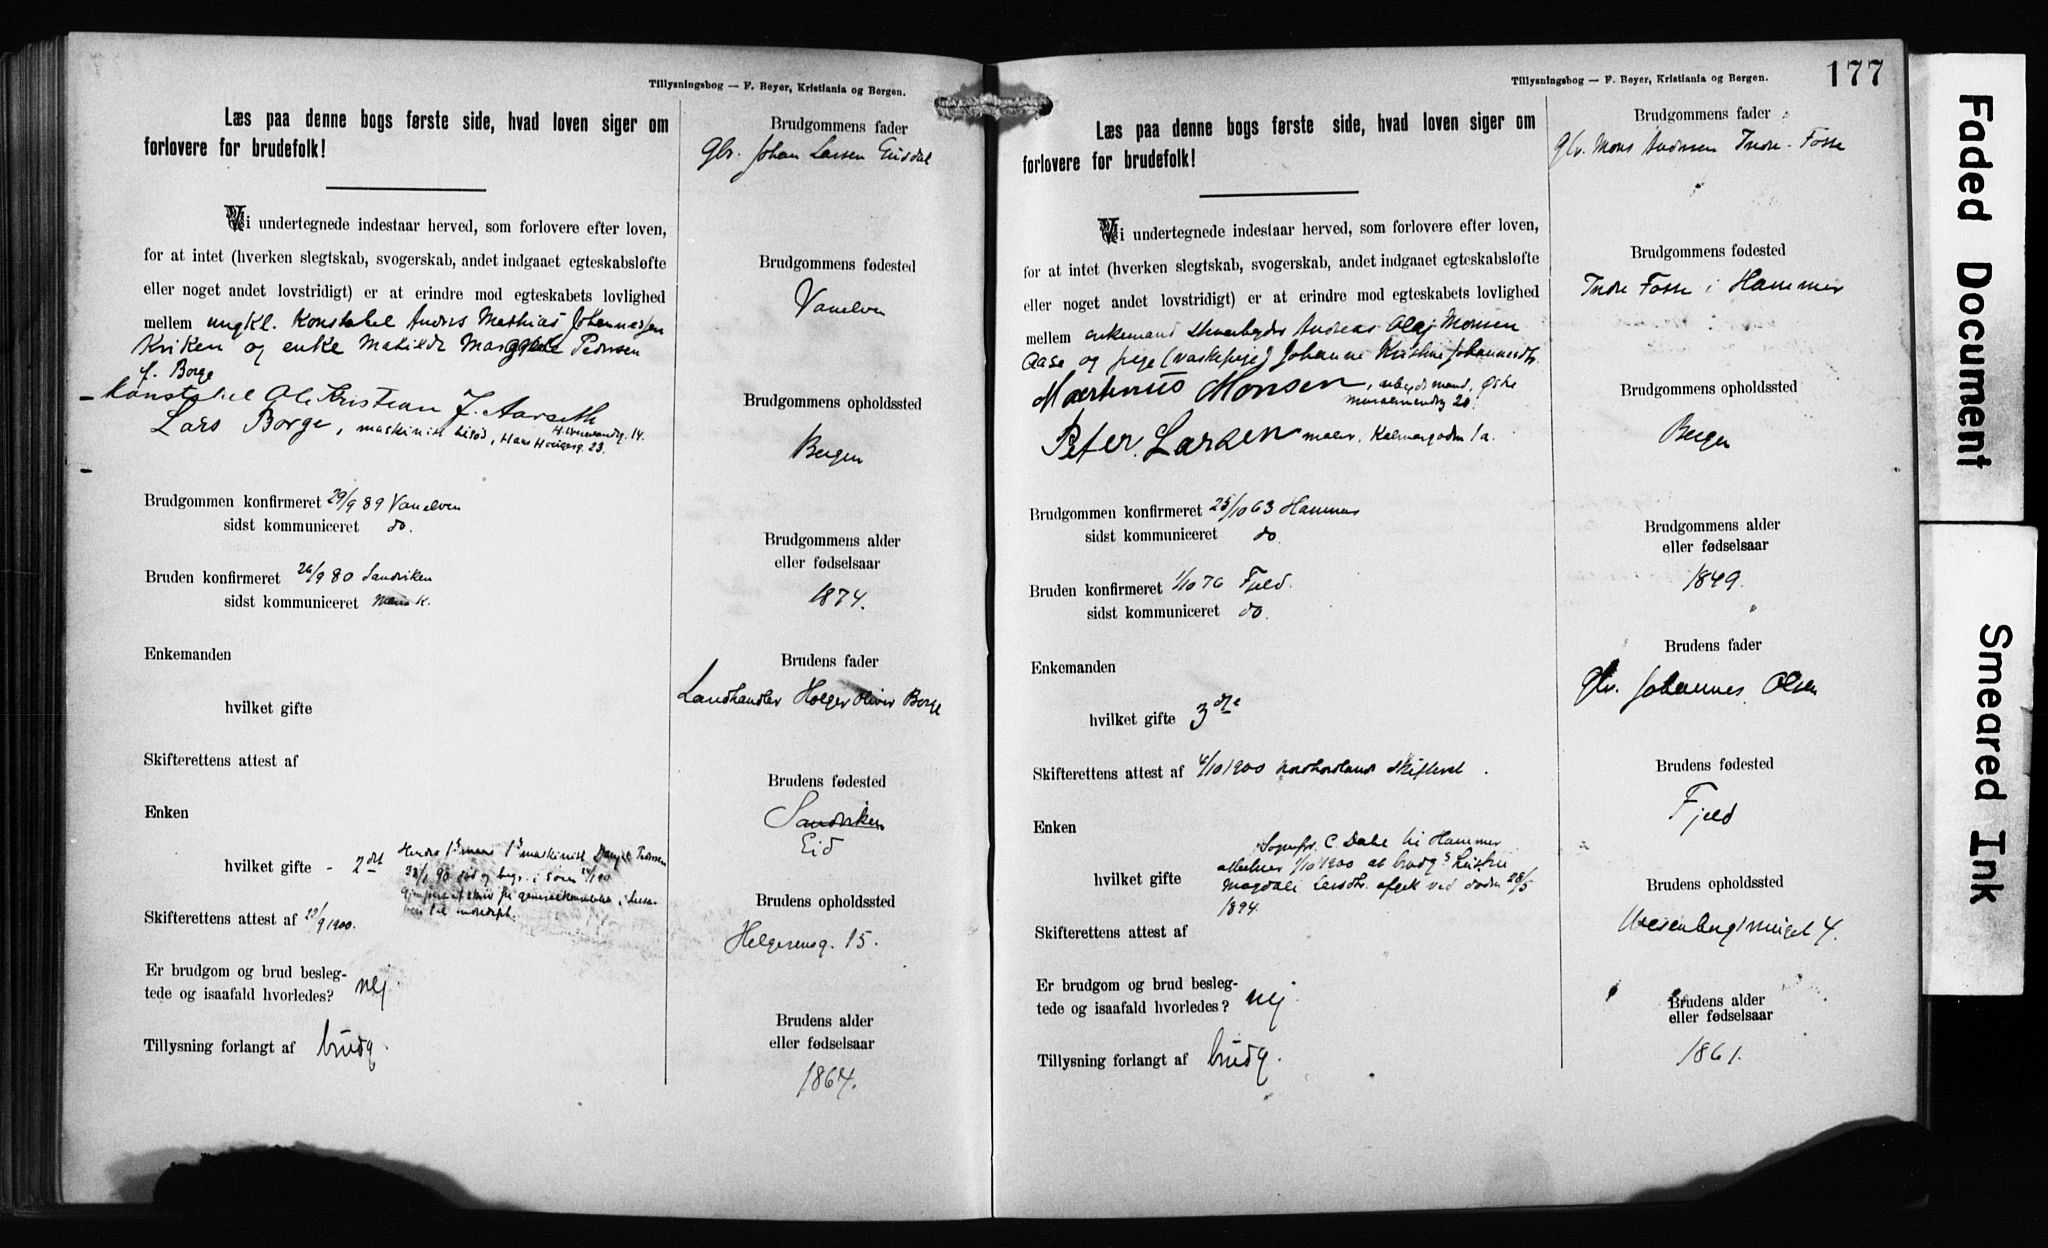 Tillysningsbog — F. Beyer, Kristiania og Bergen.
Læs paa denne bogs første side, hvad loven siger om
forlovere for brudefolk!
Vi undertegnede indestaar herved, som forlovere efter loven,
for at intet (hverken slegtskab, svogerskab, andet indgaaet egteskabsløfte
eller noget andet lovstridigt) er at erindre mod egteskabets lovlighed
mellem ungkl. Konstabel Anders Mathias Johannessen
Kriken og enke Matilde Margrete Pedersen
f. Borge
Konstabel Ole Kristian J. Aarseth
14.
Lars Borge, maskinist, Hans Haugesg. 23.
Brudgommen konfirmeret 29/9 89 Vanelven
sidst kommuniceret do.
Bruden konfirmeret 26/9 80 Sandviken
sidst kommuniceret K.
Enkemanden
hvilket gifte
Skifterettens attest af
Enken
hvilket gifte - 2det
Hendes 1ste mand maskinist Daniel Pedersen
90 død og begr. i
Skifterettens attest af 22/9 1900.
Er brudgom og brud besleg-
tede og isaafald hvorledes? nej
Tillysning forlangt af brudg.
Brudgommens fader
Gbr. Johan Larsen
Brudgommens fødested
Vanelven
Brudgommens opholdssted
Bergen
Brudgommens alder
eller fødselsaar
1874.
Brudens fader
Landhandler Holger Oliver Borge
Brudens fødested
Sandviken
Eid
Brudens opholdssted
Helgesensg. 15.
Brudens alder
eller fødselsaar
1864.
Tillysningsbog — F. Beyer, Kristiania og Bergen.
177
Læs paa denne bogs første side, hvad loven siger om
forlovere for brudefolk!
Vi undertegnede indestaar herved, som forlovere efter loven,
for at intet (hverken slegtskab, svogerskab, andet indgaaet egteskabsløfte
eller noget andet lovstridigt) er at erindre mod egteskabets lovlighed
mellem enkemand Andreas Olaj Monsen
Aase og pige (vaskepige) Johanne Kristine Johannesdtr.
Martinus Monsen, arbeidsmand, Øvre
20.
Peter Larsen maler. Kalmargaden 1a.
Brudgommen konfirmeret 25/10 63 Hammer
sidst kommuniceret do.
Bruden konfirmeret 1/10 76 Fjeld.
sidst kommuniceret do.
Enkemanden
hvilket gifte 3die
Skifterettens attest af 4/10 1900 Nordhordlands skifteret.
Enken
hvilket gifte
Sognepr. C Dahl til Hammer
attesterer 1/10 1900 at brudg.s hustru
Magdali Larsdtr. afgik ved døden 28/5
1894.
Skifterettens attest af
Er brudgom og brud besleg-
tede og isaafald hvorledes? nej
Tillysning forlangt af brudg.
Brudgommens fader
Gbr. Mons Andersen Indre-Fosse
Brudgommens fødested
Indre Fosse i Hammer
Brudgommens opholdssted
Bergen
Brudgommens alder
eller fødselsaar
1849.
Brudens fader
Gbr. Johannes Olsen
Brudens fødested
Fjeld
Brudens opholdssted
Wesenbergsmuget 4.
Brudens alder
eller fødselsaar
1861.
Faded Document
Smeared Ink